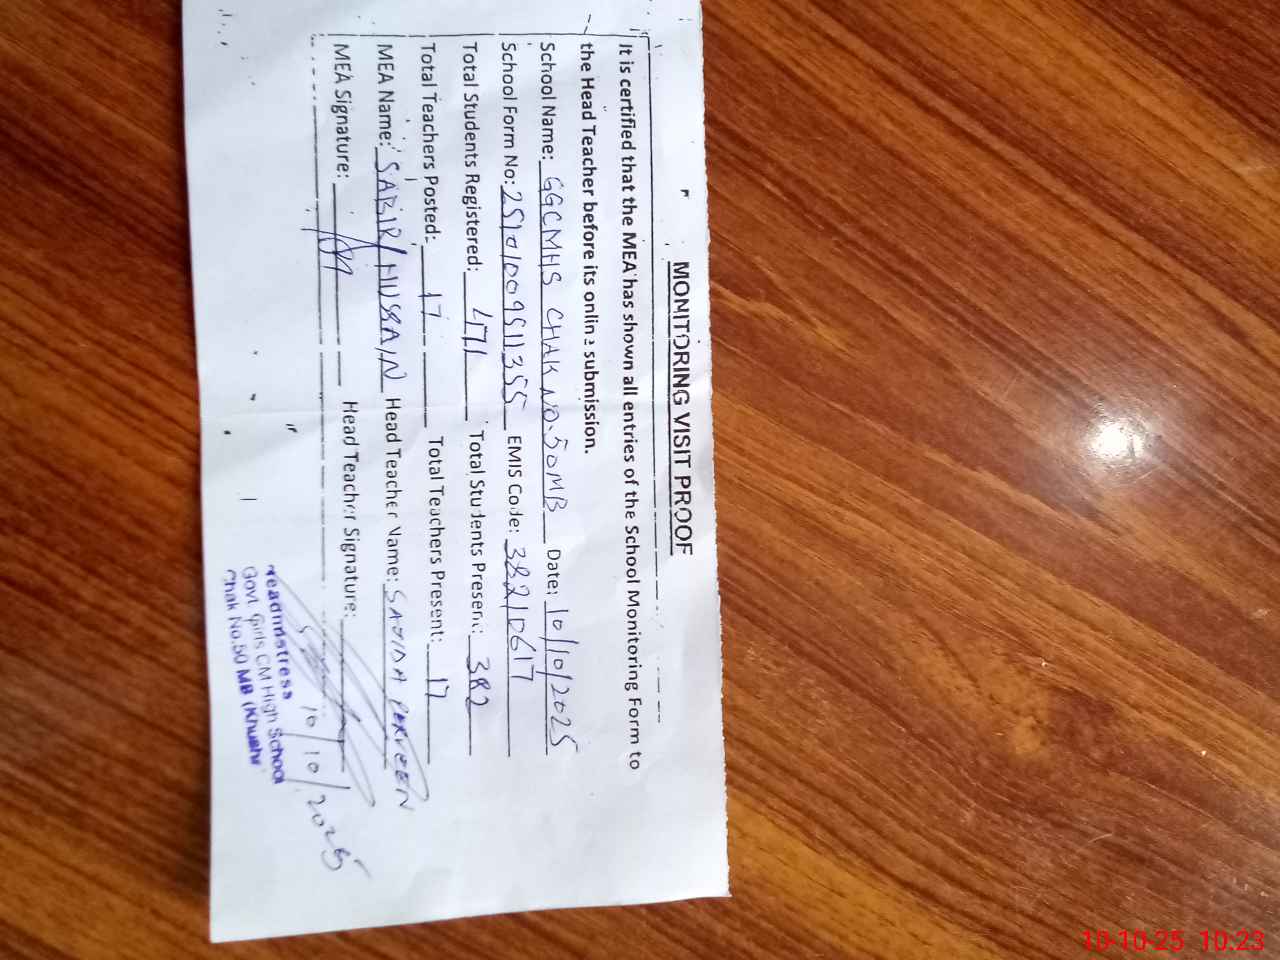 MONITORING VISIT PROOF
It is certified that the MEA has shown all entries of the School Monitoring Form to
the Head Teacher before its online submission.
School Name: GGCMHS CHAK NO.50MB Date: 10/10/2025
School Form No: 2510100951355 EMIS Code: 38210617
Total Students Registered: 471 Total Students Present: 382
Total Teachers Posted: 17 Total Teachers Present: 17
MEA Name: SABIR HUSSAIN Head Teacher Name: SAJIDA PERVEEN
MEA Signature: Head Teacher Signature:
10/10/2025
Headmistress
Govt. Girls CM High School
Chak No.50 MB (Khushr
10-10-25 10:23